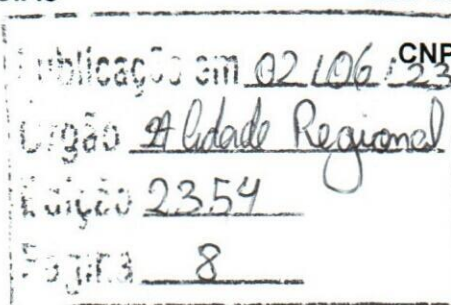 CNP
Publicação em 02/06/23
Órgão A Cidade Regional
Edição 2354
Página 8